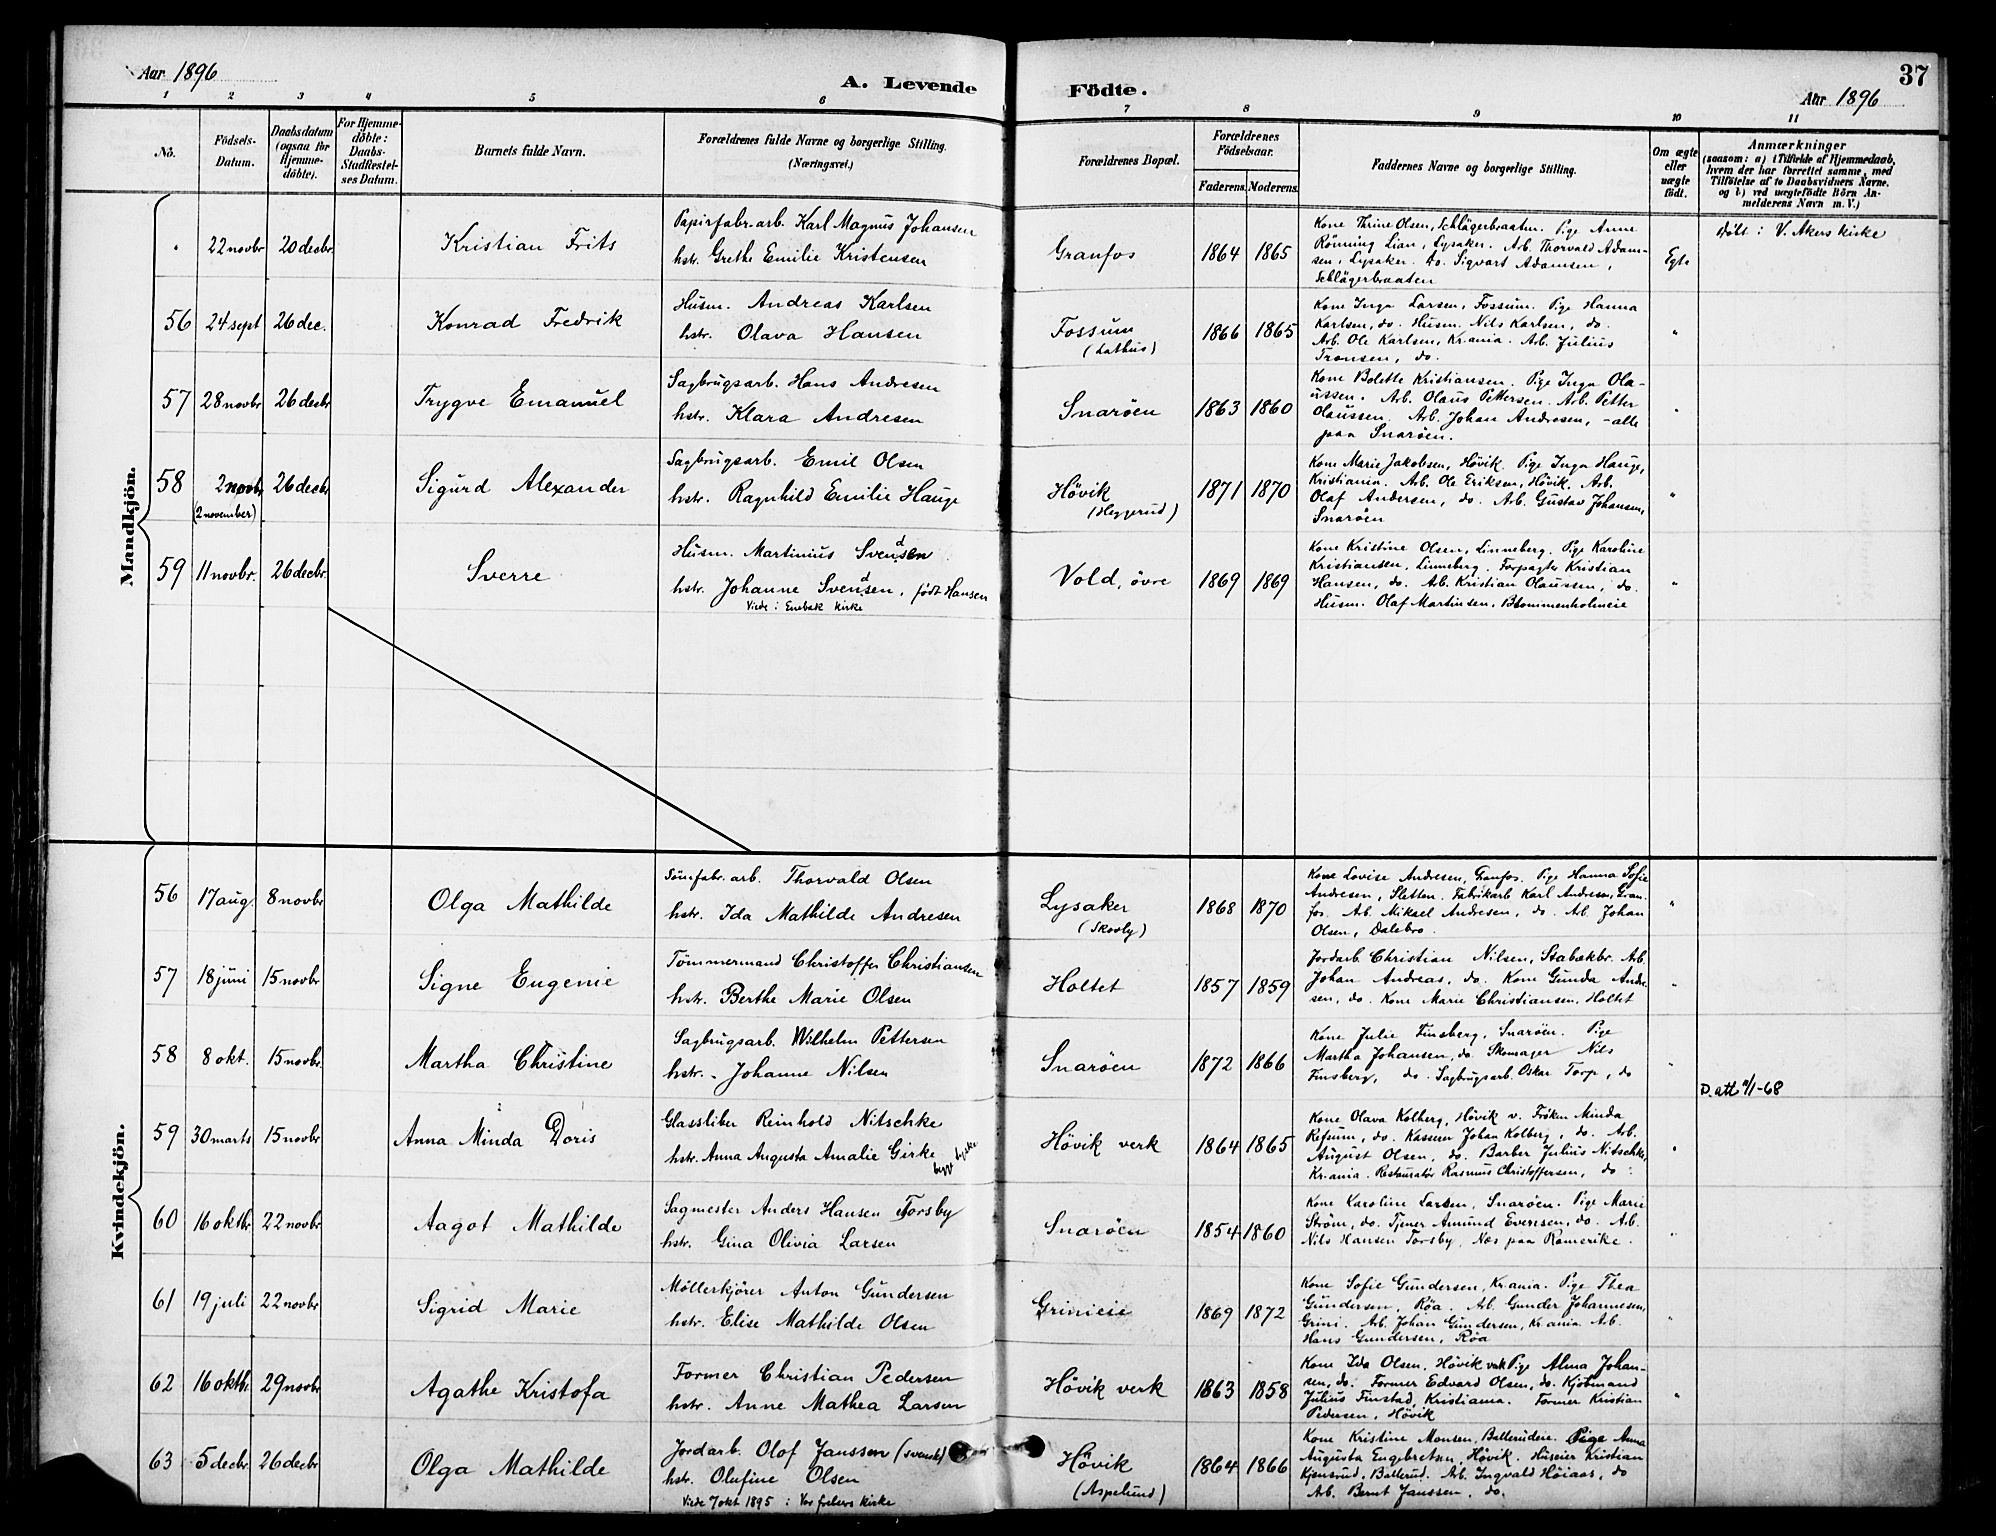 Aar 1896
A. Levende Födte.
37
Aar 1896
1 2 3 4 5 6 7 8 9 10 11
No.
Födsels-Datum.
Daabsdatum (ogsaa for Hjemmedöbte).
For Hjemmedöbte: Daabs-Stadfestelses Datum.
Barnets fulde Navn.
Forældrenes fulde Navne og borgerlige Stilling. (Næringsvei.)
Forældrenes Bopæl.
Forældrenes Födselsaar.
Faderens. Moderens.
Faddernes Navne og borgerlige Stilling.
Om ægte eller uægte födt.
Anmærkninger
(saasom: a) i Tilfælde af Hjemmedaab,
hvem der har forrettet samme, med
Tilföielse af to Daabsvidners Navne.
og b) ved uægtefödte Börn An-
melderens Navn m. V.)
Mandkjön.
22 novbr 20 decbr Kristian Frits
Papirfabr.arb. Karl Magnus Johansen
hstr. Grethe Emilie Kristensen
Granfos 1864 1865
Kone Thrine Olsen, Schlägerbraaten. Pige Anne
Rönning Lian, Lysaker. Arb. Thorvald Adam-
sen, Lysaker. Do. Sigvart Adamsen,
Schlägerbraaten
Egte
Döbt: V. Akers kirke
56 24 sept 26 dec. Konrad Fredrik
Husm. Andreas Karlsen
hstr. Olava Hansen
Fossum
(Lathus)
1866 1865
Kone Inga Larsen, Fossum. Pige Hanna
Karlsen, do. Husm. Nils Karlsen, do.
Arb. Ole Karlsen, Kr.ania. Arb. Julius
Transen, do.
"
57 28 novbr 26 decbr Trygve Emanuel
Sagbrugsarb. Hans Andresen
hstr. Klara Andresen
Snaröen 1863 1860
Kone Bolette Kristiansen. Pige Inga Ola-
ussen. Arb. Olaus Pettersen. Arb. Petter
Olaussen. Arb. Johan Andresen, - alle
paa Snaröen.
"
58 2 novbr 26 decbr Sigurd Alexander
(2 november)
Sagbrugsarb. Emil Olsen
hstr. Ragnhild Emilie Hauge
Hövik
(Heggerud)
1871 1870
Kone Marie Jakobsen, Hövik. Pige Inga Hauge,
Kristiania. Arb. Ole Eriksen, Hövik. Arb.
Olaf Andersen, do. Arb. Gustav Johansen,
Snaröen
"
59 11 novbr. 26 decbr. Sverre
Husm. Martinius Svensen
hstr. Johanne Svensen, födt Hansen
Viede: Enebak kirke
Vold, övre 1869 1869
Kone Kristine Olsen, Linneberg. Pige Karoline
Kristiansen, Linneberg. Forpagter Kristian
Hansen, do. Arb. Kristian Olaussen, do.
Husm. Olaf Martinsen, Blommenholmeie
"
Kvindekjön.
56 17 aug. 8 novbr Olga Mathilde
fabr. arb. Thorvald Olsen
hstr. Ida Mathilde Andresen
Lysaker
(Skovly)
1868 1870
Kone Lovise Andresen, Granfos. Pige Hanna Sofie
Andresen, Sletten. Fabrikarb Karl Andresen, Gran-
fos. Arb. Mikael Andresen, do. Arb. Johan
Olsen, Dalebro.
"
57 18 juni 15 novbr Signe Eugenie
Tömmermand Christoffer Christiansen
hstr. Berthe Marie Olsen
Holtet 1857 1859
Jordarb. Christian Nilsen, Stabækbr. Arb.
Johan Andreas, do. Kone Gunda Andre-
sen, do. Kone Marie Christiansen, Holtet
"
58 8 okt. 15 novbr. Martha Christine
Sagbrugsarb. Wilhelm Pettersen
hstr. Johanne Nilsen
Snaröen 1872 1866
Kone Julie Finsberg, Snaröen. Pige
Martha Johansen, do. Skomager Nils
Finsberg, do. Sagbrugsarb. Oskar Torp, do
"
59 30 marts 15 novbr Anna Minda Doris
Glassliber Reinhold Nitschke
hstr. Anna Augusta Amalie Girke
begge tyske
Hövik verk 1864 1865
Kone Olava Kolberg, Hövik v. Fröken Minda
Refsum, do. Kasserer Johan Kolberg, do. Arb.
August Olsen, do. Barber Julius Nitschke,
Kr.ania. Restauratör Rasmus Christoffersen, do.
"
D. att -68
60 16 oktbr 22 novbr Aagot Mathilde
Sagmester Anders Hansen Torsby
hstr. Gina Olivia Larsen
Snaröen 1854 1860
Kone Karoline Larsen, Snaröen. Pige Marie
Ström, do. Tjener Amund Evensen, do. Arb.
Nils Hansen Torsby, Næs paa Romerike.
"
61 19 juli 22 novbr Sigrid Marie
Möllerkjörer Anton Gundersen
hstr. Elise Mathilde Olsen
Grinieie 1869 1872
Kone Sofie Gundersen, Kr.ania. Pige Thea
Gundersen, Röa. Arb. Gunder Johannesen,
Grini. Arb. Johan Gundersen, Kr.ania. Arb.
Hans Gundersen, Röa
"
62 16 oktbr. 29 novbr Agathe Kristofa
Former Christian Pedersen
hstr. Anne Mathea Larsen
Hövik verk 1863 1858
Kone Ida Olsen, Hövik verk Pige Alma Johan-
sen, do. Former Edvard Olsen, do. Kjöbmand
Julius Finstad, Kristiania. Former Kristian
Pedersen, Hövik
"
63 5 decbr. 26 decbr Olga Mathilde
Jordarb. Olof Janssen (svensk)
hstr. Olufine Olsen
Viede 7 okt 1895: Vor frelsers kirke
Hövik
(Aspelund)
1864 1866
Kone Kristine Monsen, Ballerudeie. Pige Anna
Augusta Engebretsen, Hövik. Huseier Kristian
Kjensrud, Ballerud. Arb. Ingvald Höiaas, do
Arb. Bernt Janssen, do.